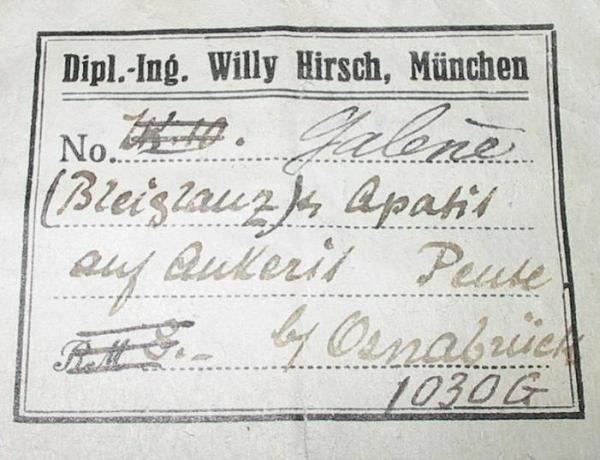 Dipl.-Ing. Willy Hirsch, München
No. Galene
(Bleiglanz) Apatit
auf Ankerit Pente
R.M b/ Osnabrück
1030G